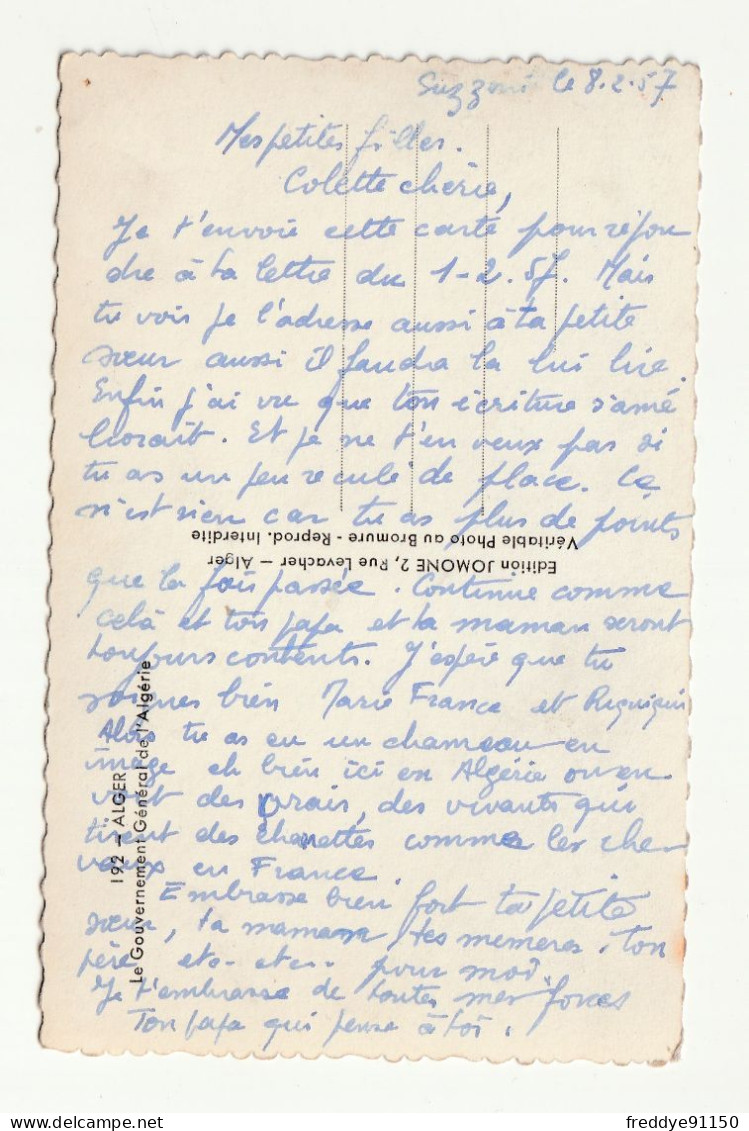 Suzzoni le 8.2.57
Mes petites filles.
Colette chérie,
Je t'envoie cette carte pour répon
dre à ta lettre du 1-2.57. Mais
tu vois je l'adresse aussi à ta petite
sœur aussi il faudra la lui lire.
Enfin j'ai vu que ton écriture s'amé
liorait. Et je ne t'en veux pas si
tu as un peu reculé de place. Ca
n'est rien car tu as plus de points
Edition JOMONE 2, Rue Levacher - Alger
Véritable Photo au Bromure - Reprod. Interdite
que la fois passée. Continue comme
celà et ton papa et ta maman seront
toujours contents. J'espère que tu
soignes bien Marie France et Riquiqui
Alors tu as eu un chameau en
image eh bien ici en Algérie on en
voit des vrais, des vivants qui
tirent des charettes comme les che
vaux en France.
Embrasse bien fort ta petite
sœur, ta maman, tes memeres. ton
père etc- etc-. pour moi.
Je t'embrasse de toutes mes forces
Ton papa qui pense à toi.
192 - ALGER
Le Gouvernement Général de l'Algérie
freddye91150